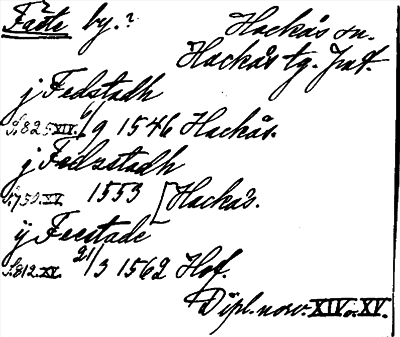 Fåste by.?
Hackås sn.
Hackås tg. Jmt.
j Fedstadh
S. 825. XIV. 6/9 1546 Hackås.
j Fedzstadh
S. 750. XV. 1553 [Hackås.
ÿ Feestade
S. 812. XV. 21/3 1562 Hof.
Dipl. norv. XIV o. XV.